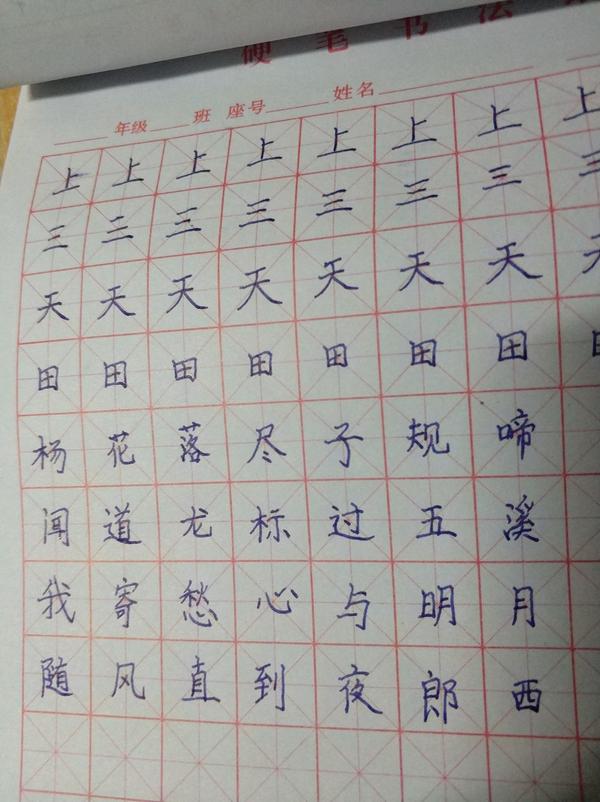 硬笔书法
年级 班 座号 姓名
上上上上上上上上
三三三三三三三三
天天天天天天天
田田田田田田田
杨花落尽子规啼
闻道龙标过五溪
我寄愁心与明月
随风直到夜郎西